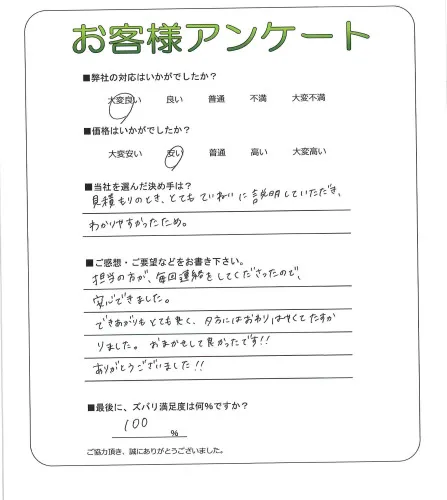 お客様アンケート
■弊社の対応はいかがでしたか？
大変良い 良い 普通 不満 大変不満
■価格はいかがでしたか？
大変安い 安い 普通 高い 大変高い
■当社を選んだ決め手は？
見積もりのとき、とてもていねいに説明していただき、
わかりやすかったため。
■ご感想・ご要望などをお書き下さい。
担当の方が、毎回連絡をしてくださったので、
安心できました。
できあがりもとても良く、夕方にはおわり はやくてたすか
りました。おまかせして良かったです!!
ありがとうございました!!
■最後に、ズバリ満足度は何%ですか？
100 %
ご協力頂き、誠にありがとうございました。